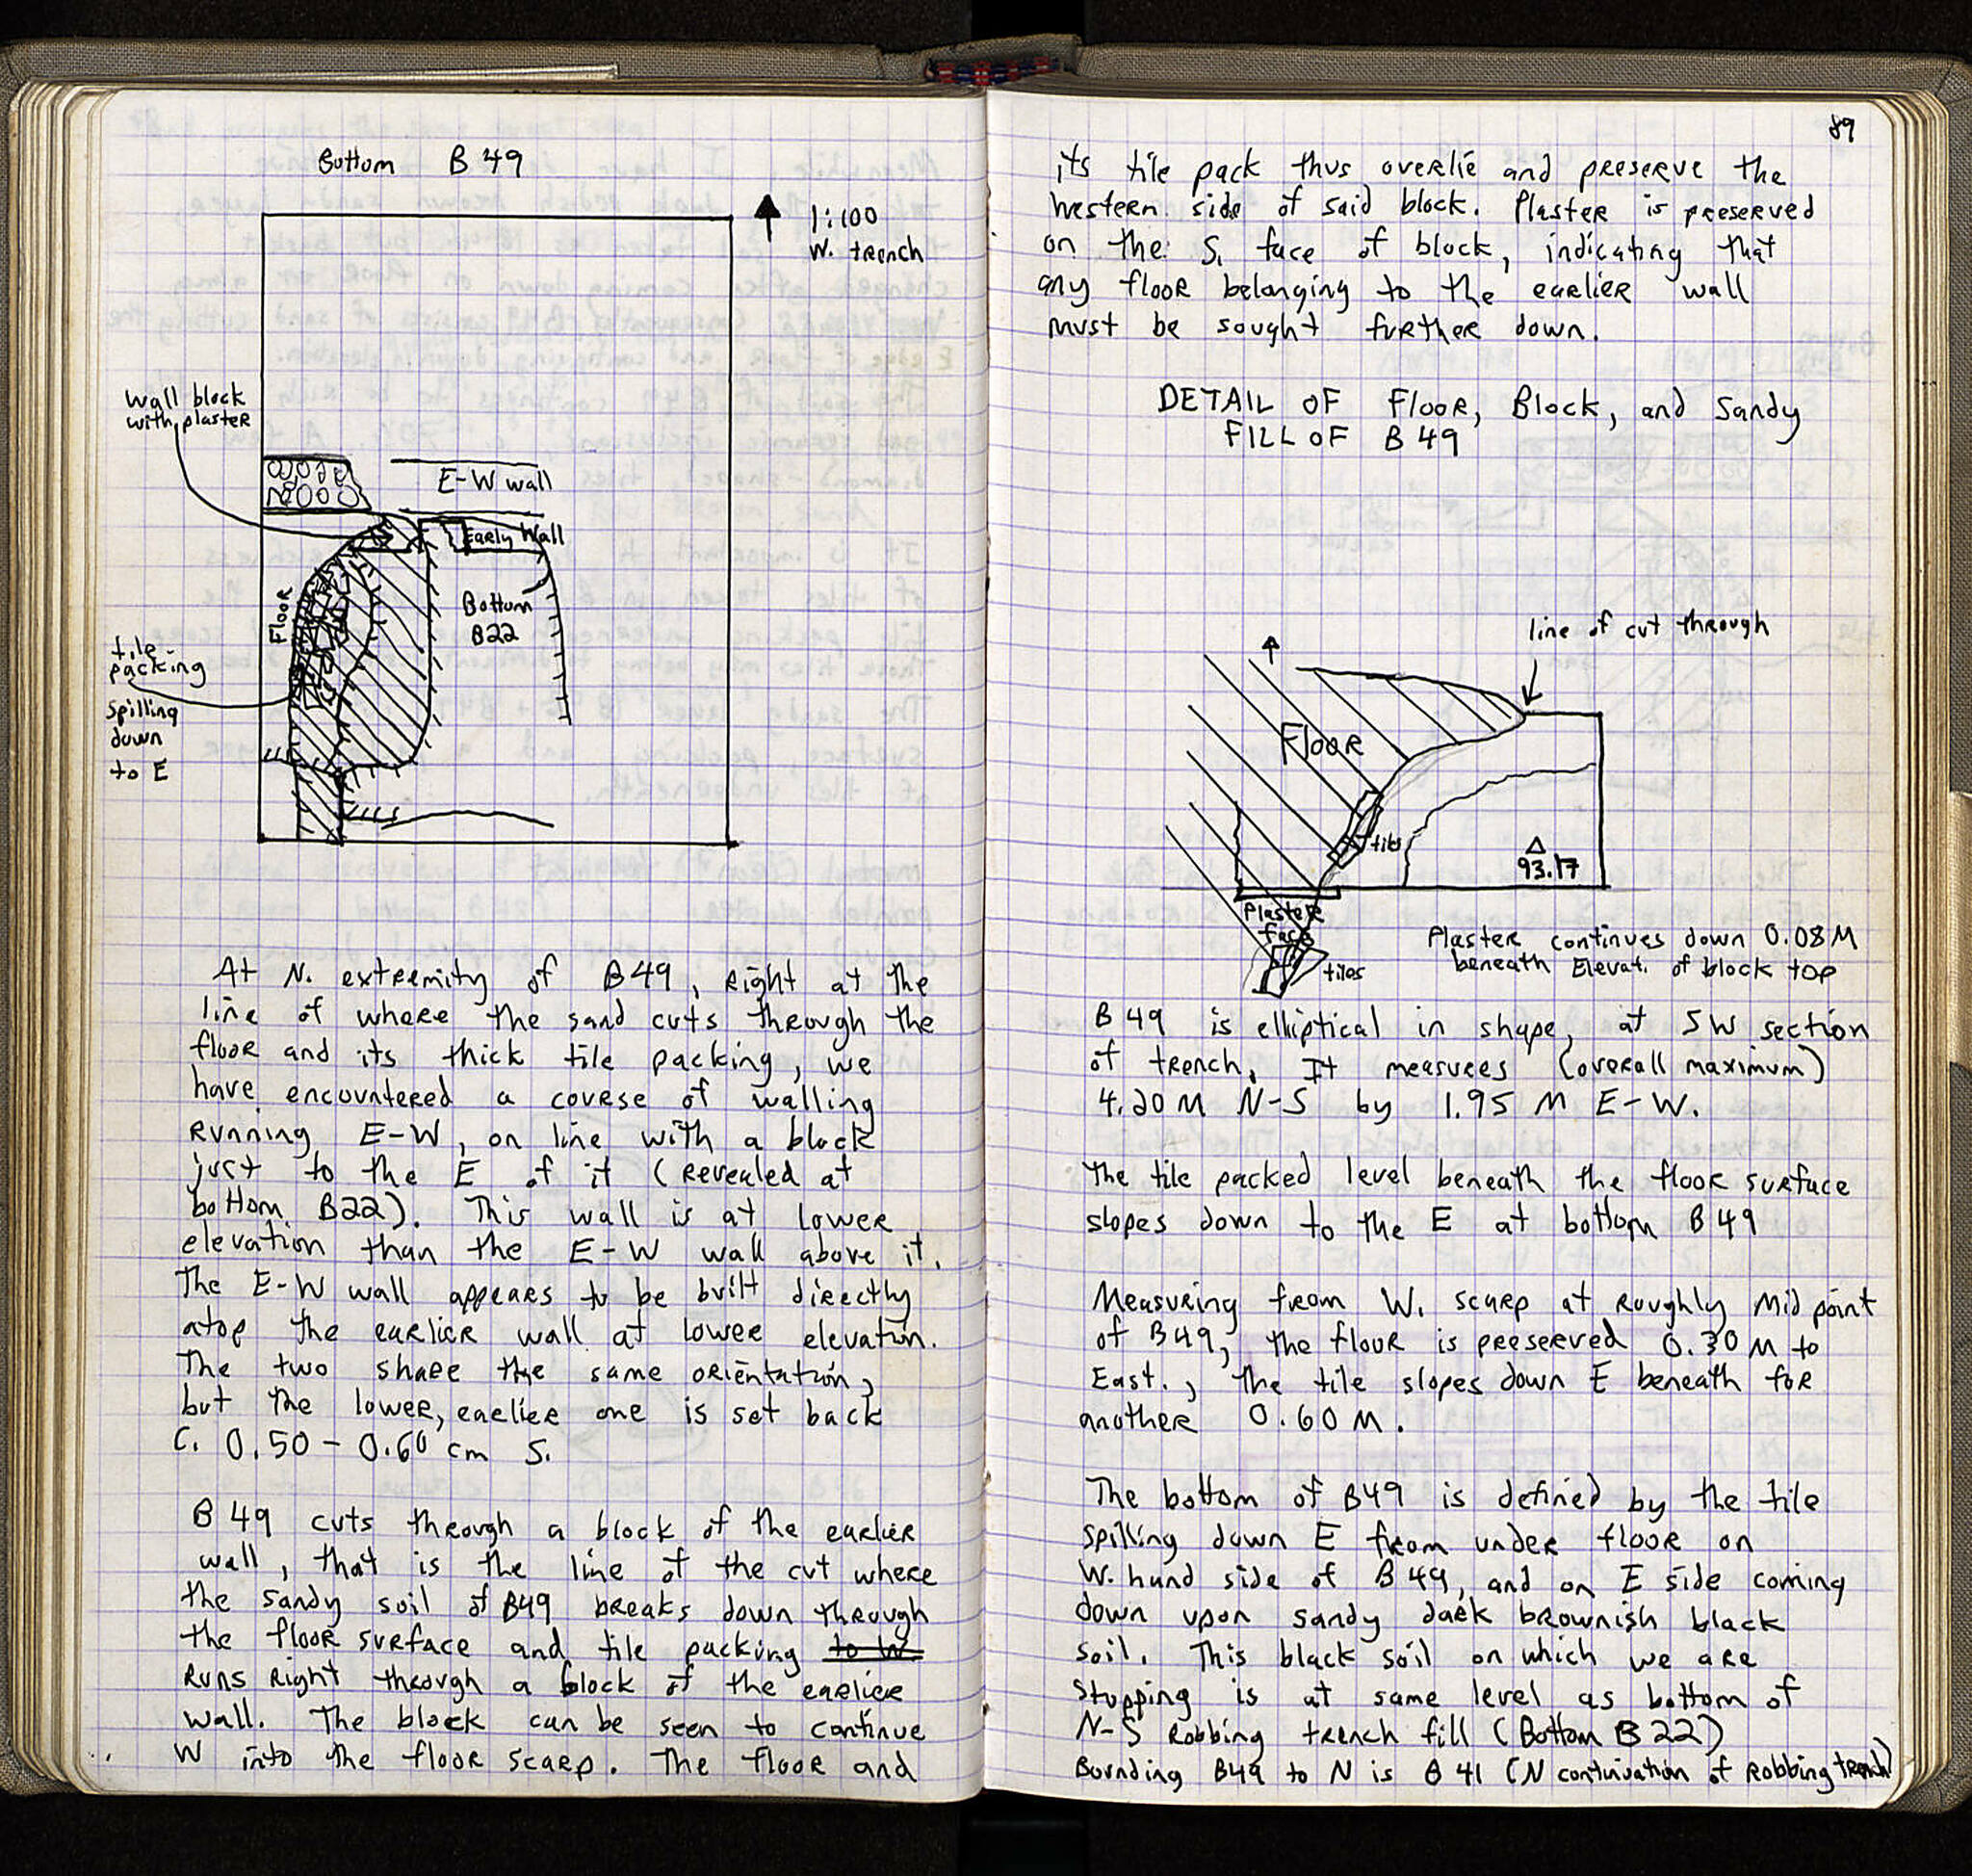 Bottom B 49
1:100
W. trench
Wall block
with plaster
E-W wall
Early Wall
Floor
Bottom
B22
tile-
packing
spilling
down
to E
At N. extremity of B49, right at the
line of where the sand cuts through the
floor and its thick tile packing, we
have encountered a course of walling
running E-W, on line with a block
just to the E of it (revealed at
bottom B22). This wall is at lower
elevation than the E-W wall above it.
The E-W wall appears to be built directly
atop the earlier wall at lower elevation.
The two share the same orientation,
but the lower, earlier one is set back
c. 0.50 - 0.60 cm S.
B 49 cuts through a block of the earlier
wall, that is the line of the cut where
the sandy soil of B49 breaks down through
the floor surface and tile packing to W.
runs right through a block of the earlier
wall. The block can be seen to continue
W into the floor scarp. The floor and
89
its tile pack thus overlie and preserve the
western side of said block. Plaster is preserved
on the S. face of block, indicating that
any floor belonging to the earlier wall
must be sought further down.
DETAIL OF Floor, Block, and Sandy
FILL OF B 49
line of cut through
Floor
tiles
93.17
Plaster
face
tiles
Plaster continues down 0.08 M
beneath Elevat. of block top
B 49 is elliptical in shape, at SW section
of trench. It measures (overall maximum)
4.20 M N-S by 1.95 M E-W.
The tile packed level beneath the floor surface
slopes down to the E at bottom B 49
Measuring from W. scarp at roughly mid point
of B49, the floor is preserved 0.30 M to
East., the tile slopes down E beneath for
another 0.60 M.
The bottom of B49 is defined by the tile
spilling down E from under floor on
W. hand side of B49, and on E side coming
down upon sandy dark brownish black
soil. This black soil on which we are
stopping is at same level as bottom of
N-S Robbing trench fill (Bottom B 22)
Bounding B49 to N is B 41 (N continuation of Robbing trench)